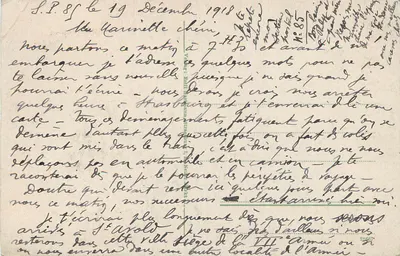 S.P. 85 le 19 Décembre 1918
Ma Marinette chérie,
Nous partons ce matin à 7h et avant de m'
embarquer je t'adresse quelques mots pour ne pas
te laisser sans nouvelle puisque je ne sais quand je
pourrai t'écrire - nous devons, je crois, nous arrêter
quelques heures à Strasbourg et je t'enverrai de là une
carte - Tous ces déménagements fatiguent parce qu'on se
démène d'autant plus que cette fois on a fait des colis
qui sont mis dans le train, c'est à dire que nous ne nous
déplaçons pas en automobile et en camion - je te
raconterai dès que je le pourrai les péripéties du voyage -
qui devait rester ici quelque part avec
nous ce matin, nos successeurs étant arrivés hier soir
je t'écrirai plus longuement dès que nous serons
arrivés à St Avold je ne sais pas d'ailleurs si nous
resterons dans cette ville siège de la VIIe Armée ou si
on nous enverra dans une autre localité de l'Armée -
je te
postal
No 85